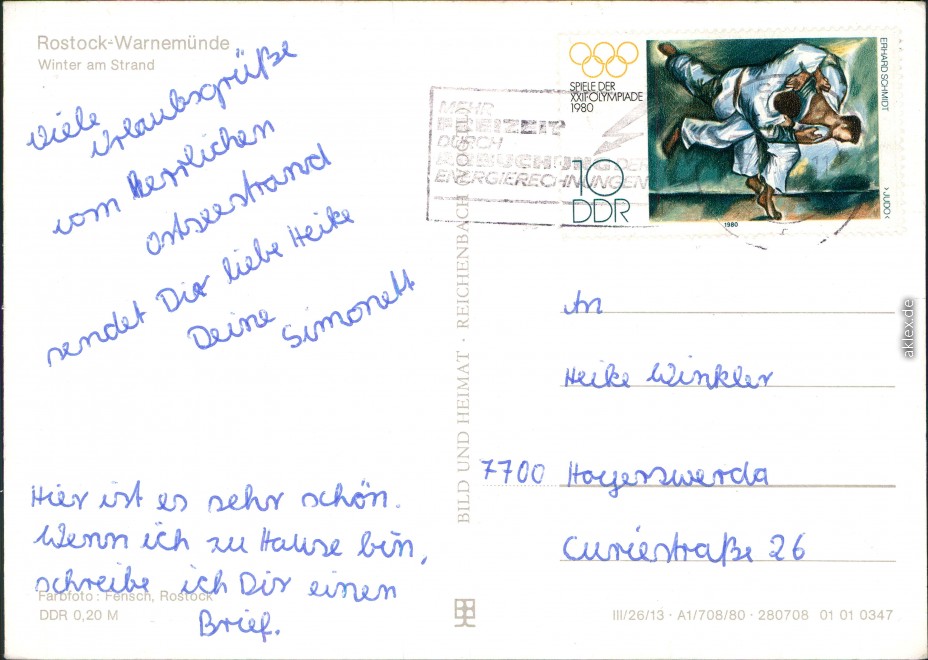 Rostock-Warnemünde
Winter am Strand
Viele
Urlaubsgrüße
vom herrlichen
Ostseestrand
sendet Dir liebe Heike
Deine
Simonett
Hier ist es sehr schön.
Wenn ich zu Hause bin,
schreibe ich Dir einen
Brief.
Farbfoto: Fensch, Rostock
DDR 0,20 M
BILD UND HEIMAT · REICHENBACH (VOGTL)
MEHR
FREIZEIT
DURCH
ABBUCHUNG DER
ENERGIERECHNUNGEN
SPIELE DER
XXII. OLYMPIADE
1980
10
DDR
1980
ERHARD SCHMIDT
›JUDO‹
An
Heike Winkler
7700 Hoyerswerda
Curiestraße 26
III/26/13 · A1/708/80 · 280708 01 01 0347
aklex.de